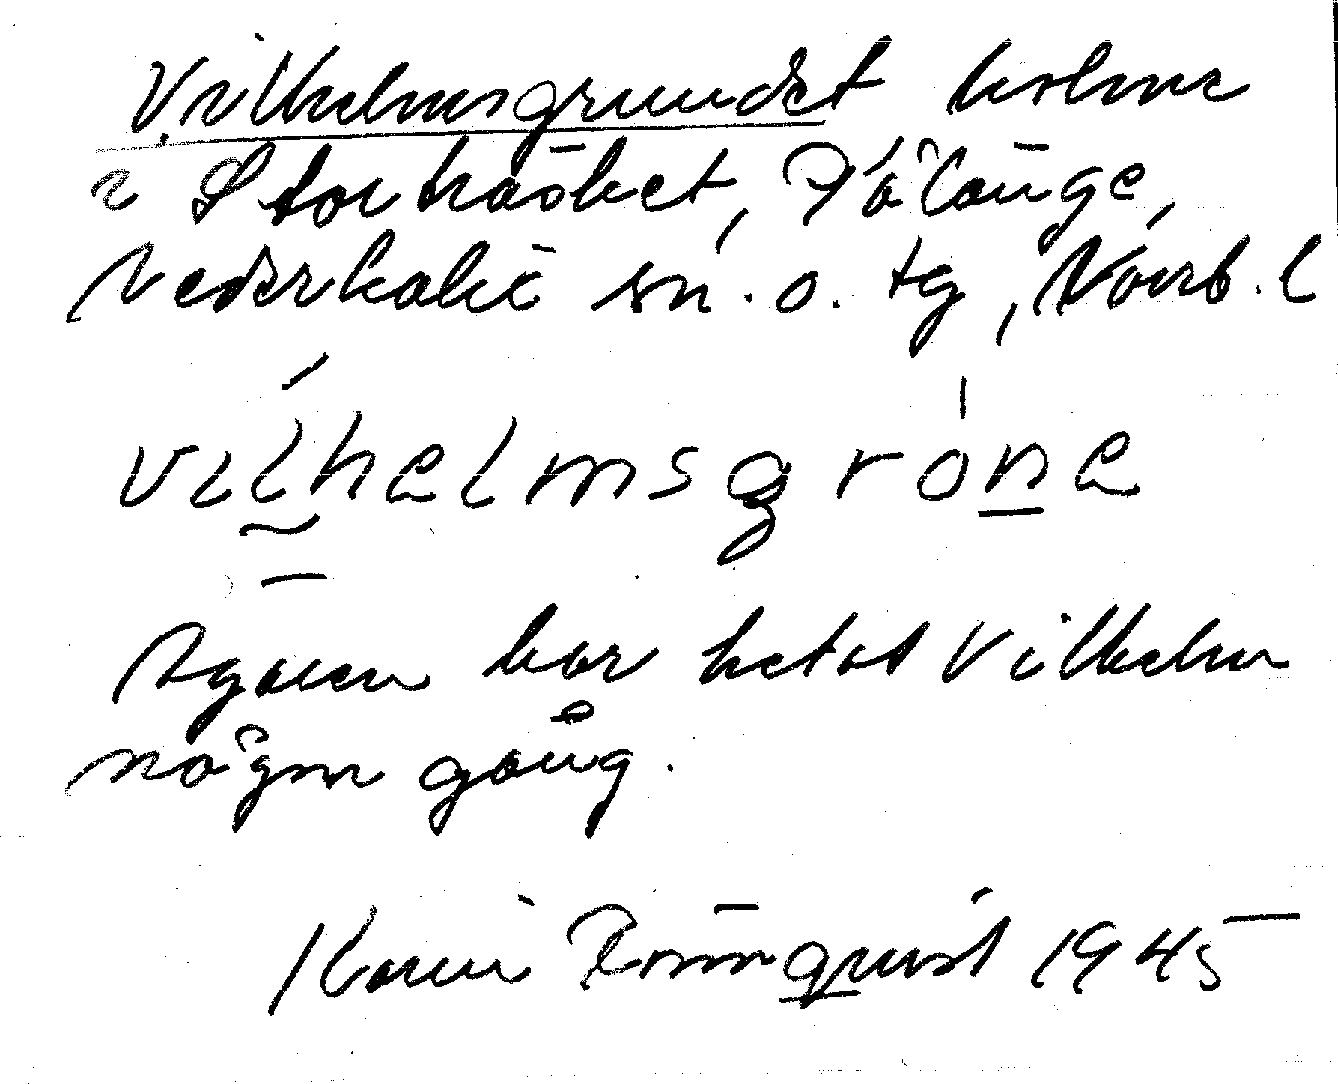 Vilhelmsgrundet holme
i Storträsket, Pålänge,
Nederkalix sn. o. tg, Norrb. l
vilhelmsgrone
Ägaren har hetat Vilhelm
någon gång.
Karin Rönnquist 1945